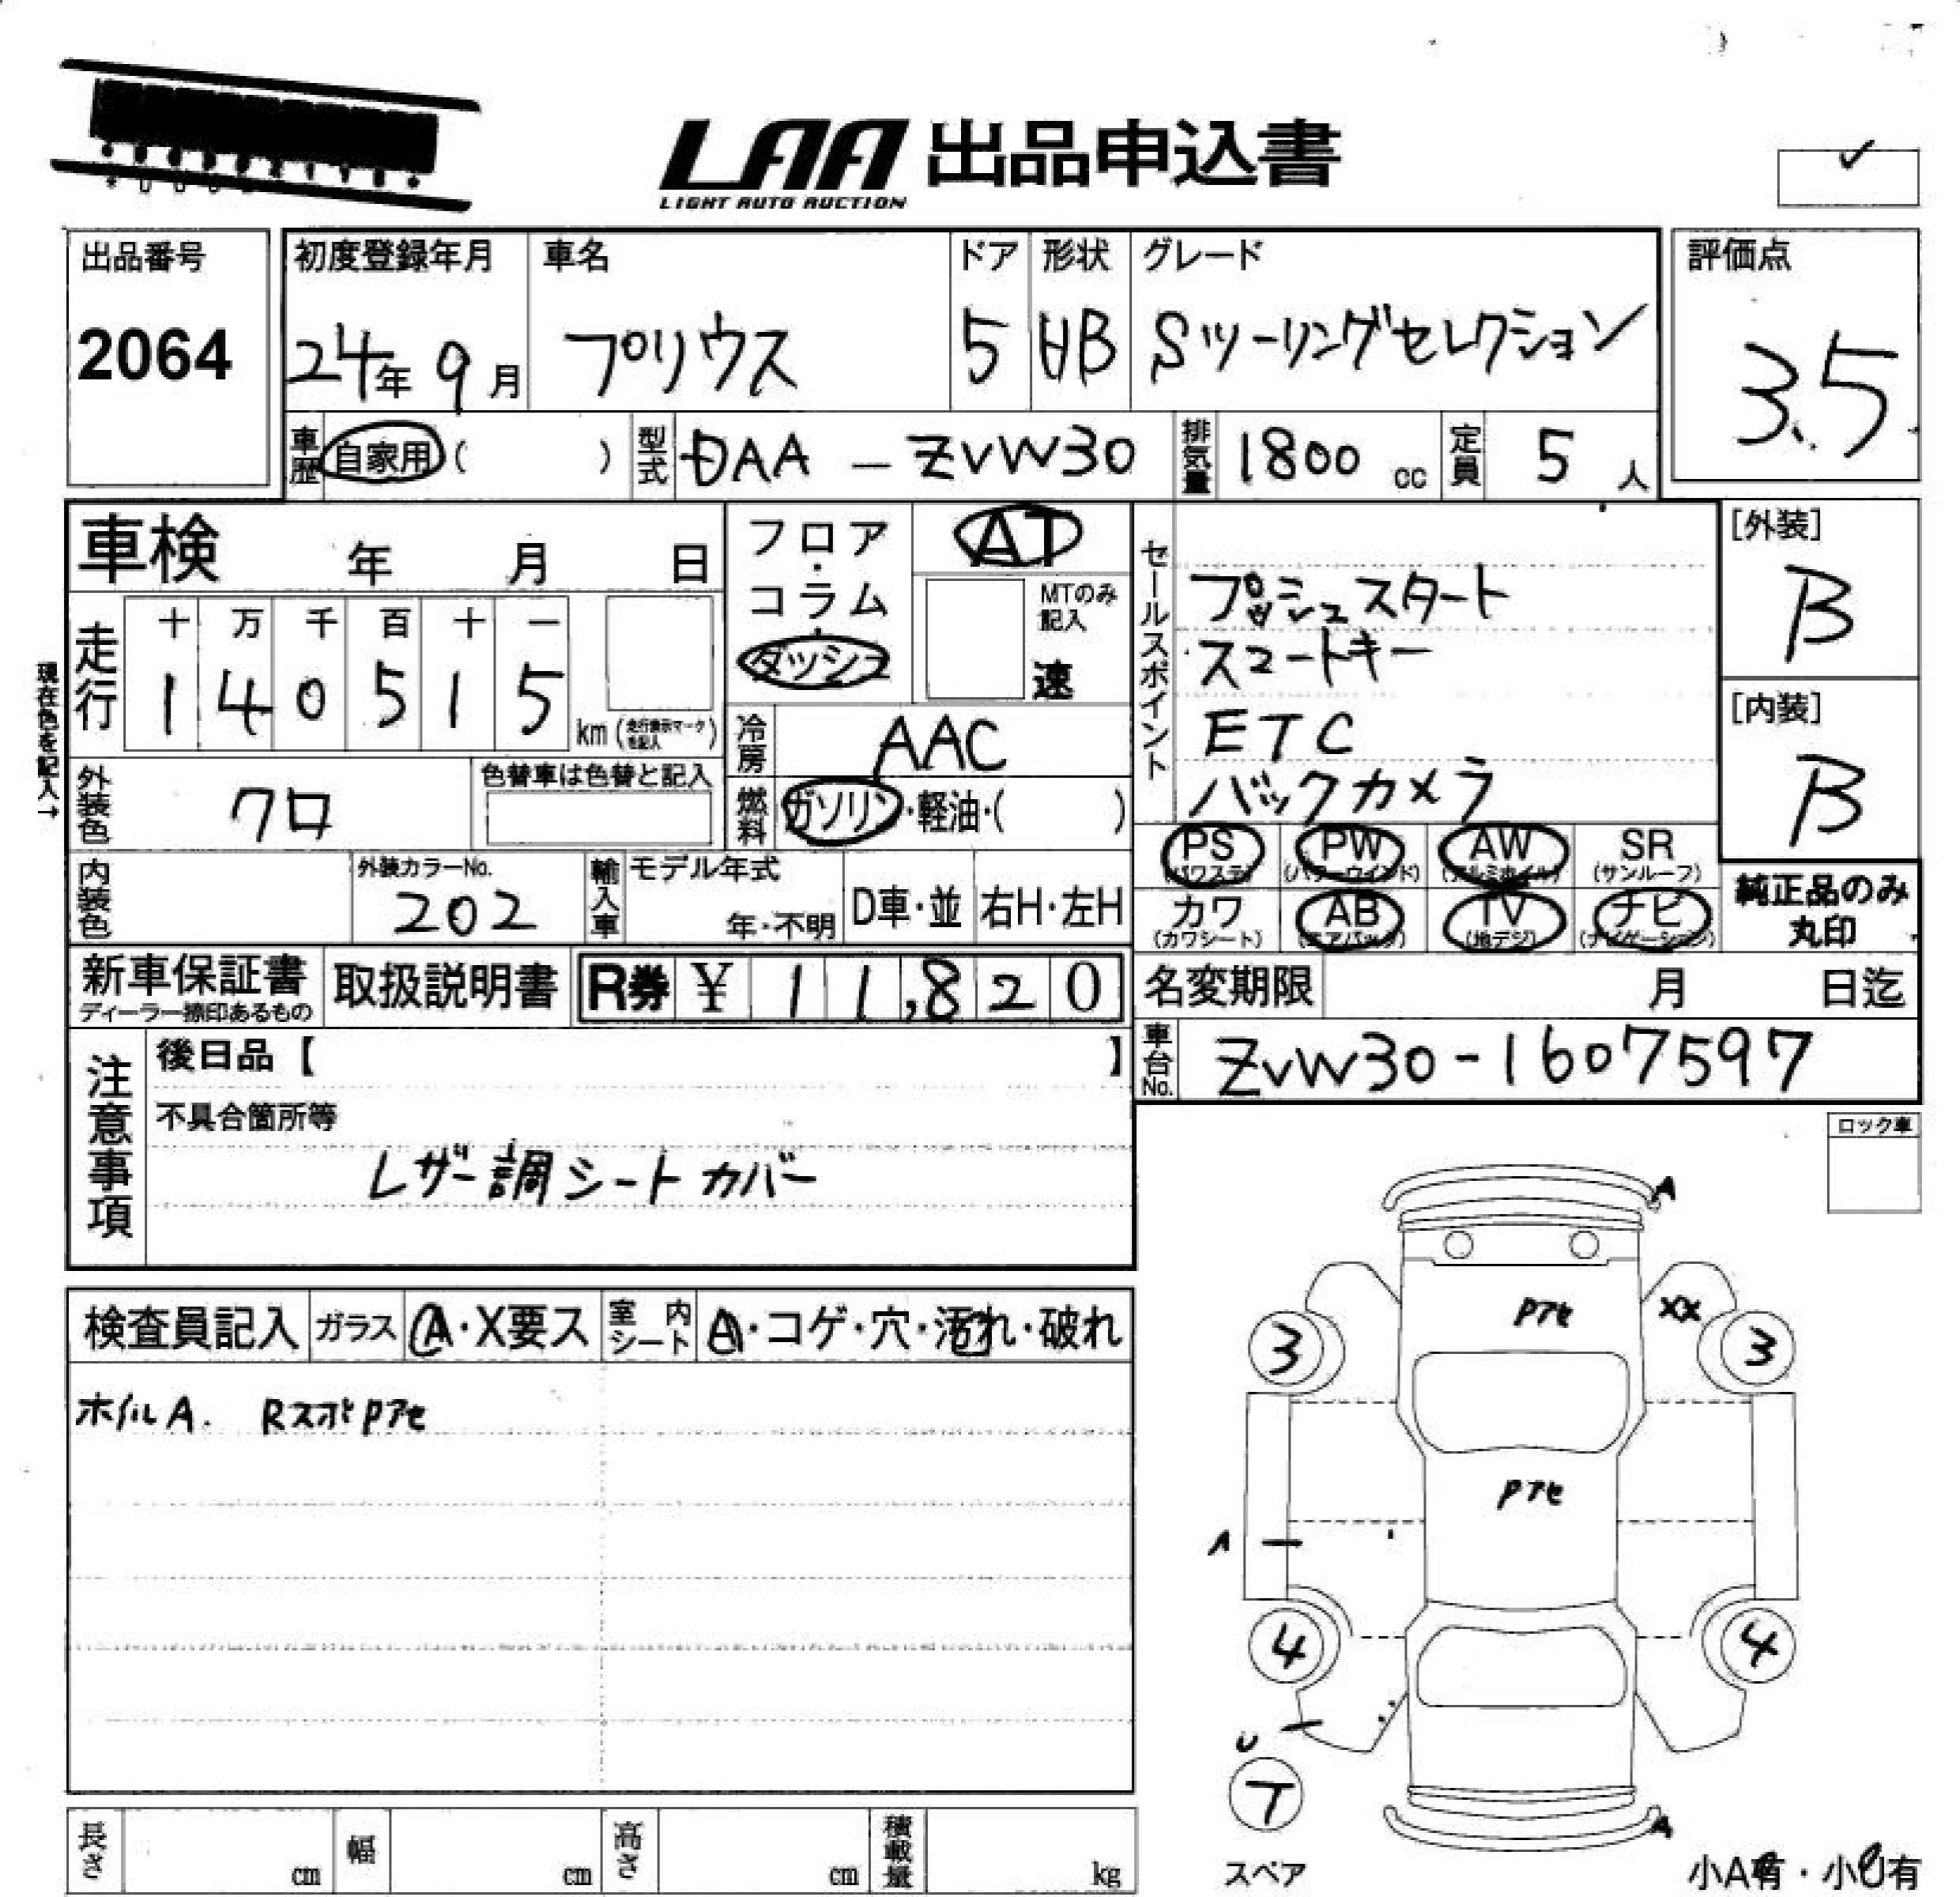 LAA 出品申込書
LIGHT AUTO AUCTION
出品番号
2064
初度登録年月 車名 ドア 形状 グレード
24年 9月 プリウス 5 HB Sツーリングセレクション
評価点
3.5
車歴 自家用( ) 型式 DAA-ZVW30 排気量 1800 cc 定員 5 人
車検 年 月 日
走行 十 万 千 百 十 一
1 4 0 5 1 5 km (走行表示マークを記入)
現在色を記入→
外装色 クロ 色替車は色替と記入
内装色 外装カラーNo. 202
輸入車 モデル年式 年・不明 D車・並 右H・左H
フロア・コラム・ダッシュ
AT
MTのみ記入 速
冷房 AAC
燃料 ガソリン・軽油・( )
セールスポイント
プッシュスタート
スマートキー
ETC
バックカメラ
[外装]
B
[内装]
B
PS (パワステ) PW (パワーウインド) AW (アルミホイル) SR (サンルーフ)
カワ (カワシート) AB (エアバッグ) TV (地デジ) ナビ (ナビゲーション)
純正品のみ丸印
新車保証書 ディーラー捺印あるもの 取扱説明書 R券 ¥ 11,820
名変期限 月 日迄
車台No. ZVW30-1607597
注意事項
後日品【 】
不具合箇所等
レザー調シートカバー
ロック車
検査員記入 ガラス A・X要ス 室内シート A・コゲ・穴・汚れ・破れ
ホイルA. RスポイPアセ
A
Pアセ XX
3 3
Pアセ
A
4 4
U
T
スペア
A
小A有・小U有
長さ cm 幅 cm 高さ cm 積載量 kg